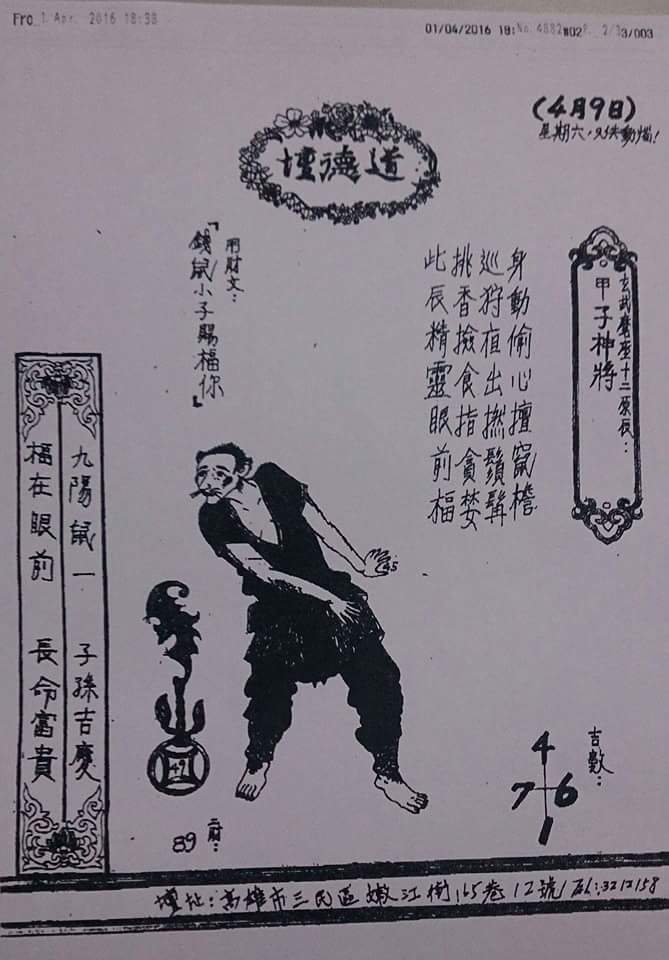 Fro 1. Apr. 2016 18:38
01/04/2016 18: No. 4882 W02 P. 2/3 3/003
(4月9日)
星期六,
道德壇
玄武麾座十二原辰:
甲子神將
身動偷心擅窺檐
巡狩夜出撚鬚髯
挑香撿食指貪婪
此辰精靈眼前福
用財文:
「錢鼠小子賜福你」
九陽鼠一 子孫吉慶
福在眼前 長命富貴
45
49
二財:
89
吉數:
4
7 6
1
壇址:高雄市三民區嫩江街165巷12號/Tel:3212158